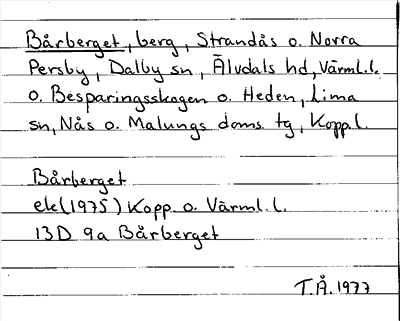 Bårberget, berg, Strandås o. Norra
Persby, Dalby sn, Älvdals hd, Värml. l.
o. Besparingsskogen o. Heden, Lima
sn, Nås o. Malungs doms. tg, Kopp l.
Bårberget
ek (1975) Kopp. o. Värml. l.
13D 9a Bårberget
T.Å. 1977